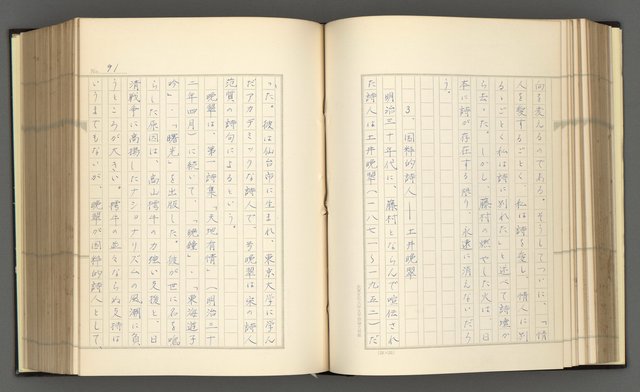 何を支えるのである。そうしてついに、「情
人を愛するごとく、私は詩を愛し、情人に別
るるごとく私は詩に別れた」と述べて詩壇か
ら去った。しかし、藤村の燃やした火は、日
本に詩が存在する限り、永遠に消えないだろ
う。
3、国粋的詩人――土井晩翠
明治三十年代に、藤村とならんで喧伝され
た詩人は土井晩翠(一八七一～一九五二)だ
No. 91
った。彼は仙台市に生まれ、東京大学に学ん
だアカデミックな詩人で、号晩翠は宋の詩人
范質の詩句によるという。
晩翠は、第一詩集「天地有情」(明治三十
二年四月)に続いて、「暁鐘」、「東海遊子
吟」、「曙光」を出版した。彼が世に名を唱
らした原因は、高山樗牛の力強い支援と、日
清戦争に高揚したナショナリズムの風潮に負
うところが大きい。樗牛の並々ならぬ支持は
いうまでもないが、晩翠が国粋的詩人として、